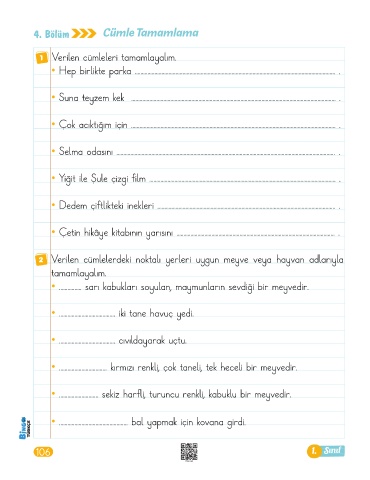 4. Bölüm Cümle Tamamlama
1 Verilen cümleleri tamamlayalım.
• Hep birlikte parka .................................................. .
• Suna teyzem kek .................................................. .
• Çok acıktığım için .................................................. .
• Selma odasını .................................................. .
• Yiğit ile Şule çizgi film .................................................. .
• Dedem çiftlikteki inekleri .................................................. .
• Çetin hikâye kitabının yarısını .................................................. .
2 Verilen cümlelerdeki noktalı yerleri uygun meyve veya hayvan adlarıyla
tamamlayalım.
• ............ sarı kabukları soyulan, maymunların sevdiği bir meyvedir.
• .............................. iki tane havuç yedi.
• .............................. cıvıldayarak uçtu.
• ......................... kırmızı renkli, çok taneli, tek heceli bir meyvedir.
• ..................... sekiz harfli, turuncu renkli, kabuklu bir meyvedir.
• .................................... bal yapmak için kovana girdi.
Bingo
TÜRKÇE
106
1. Sınıf